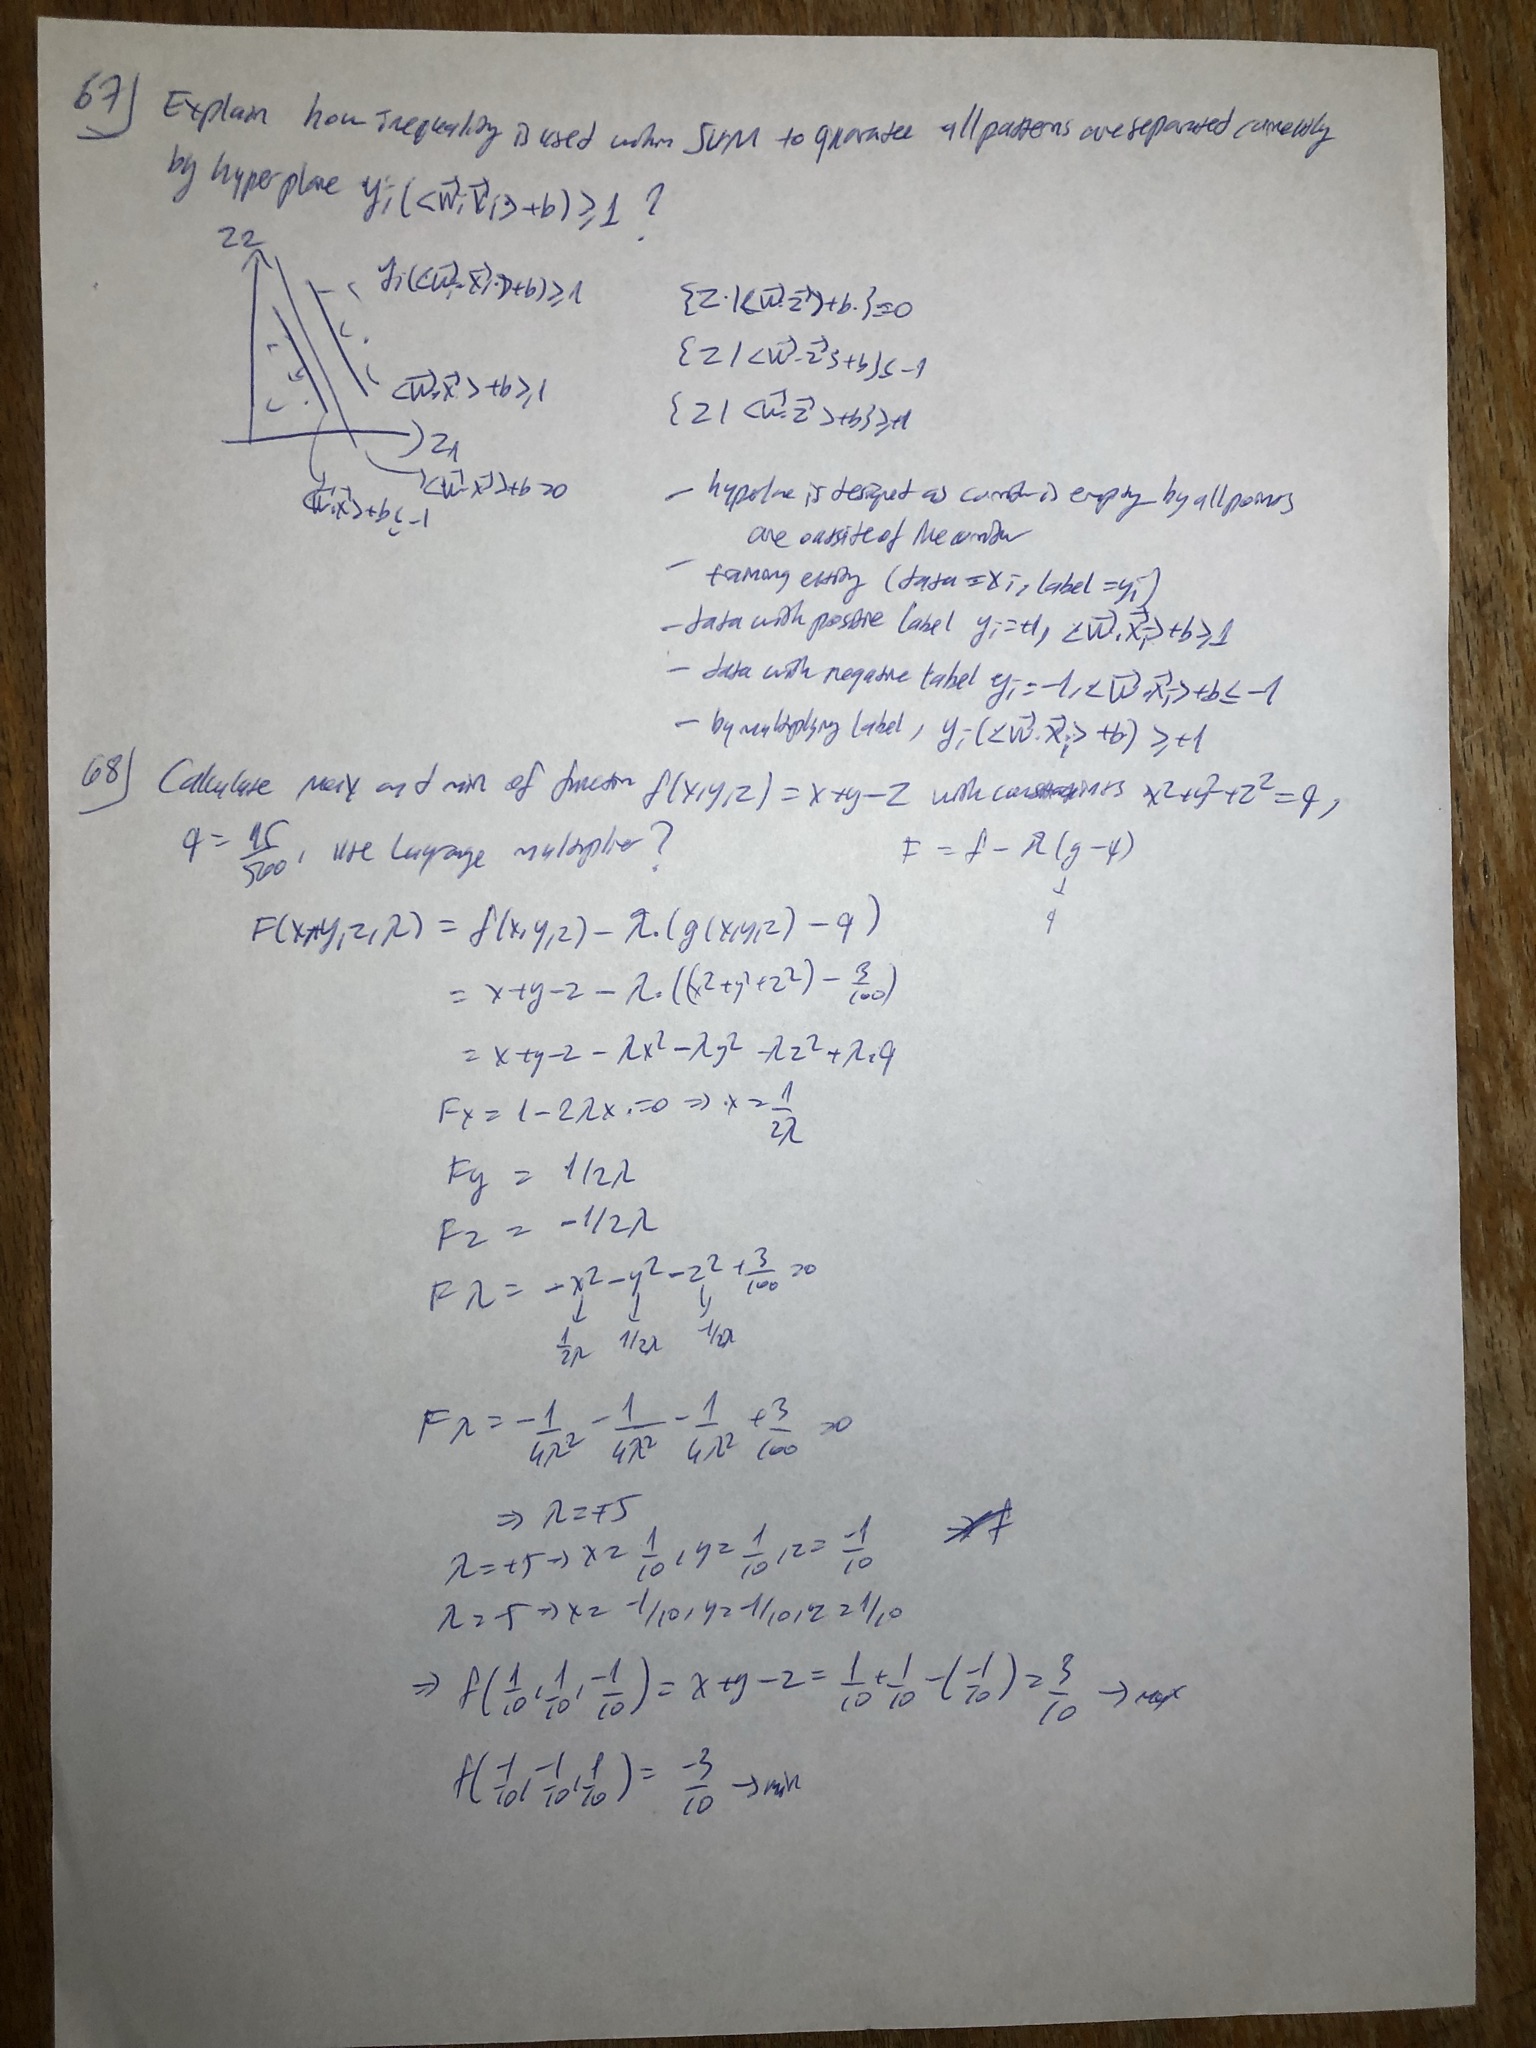 67) Explain how inequality is used within SVM to guarantee all patterns are separated correctly
by hyperplane yi(<w⃗i x⃗i>+b)≥1 ?
z2
yi(<w⃗·x⃗i>+b)≥1
<w⃗·x⃗>+b≥1
z1
<w⃗·x⃗>+b=0
<w⃗·x⃗>+b≤-1
{z·|<w⃗·z⃗>+b·}=0
{z|<w⃗·z⃗>+b}≤-1
{z|<w⃗·z⃗>+b}≥+1
- is designed as is empty by all points
are outside of the
- training entity (data=xi, label=yi)
- data with positive label yi=+1, <w⃗·x⃗i>+b≥1
- data with negative label yi=-1, <w⃗·x⃗i>+b≤-1
- by multiplying label, yi(<w⃗·x⃗i>+b)≥+1
68) Calculate max and min of function f(x,y,z)=x+y-z with constraints x²+y²+z²=q,
q=15/500, use Lagrange multiplier?
F=f-λ(g-q)
↓
q
F(x,y,z,λ)=f(x,y,z)-λ.(g(x,y,z)-q)
=x+y-z-λ.((x²+y²+z²)-3/100)
=x+y-z-λx²-λy²-λz²+λ.q
Fx=1-2λx.=0⇒.x=1/2λ
Fy=1/2λ
Fz=-1/2λ
Fλ=-x²-y²-z²+3/100=0
↓ ↓ ↓
1/2λ 1/2λ -1/2λ
Fλ=-1/4λ²-1/4λ²-1/4λ²+3/100=0
⇒λ=∓5
λ=+5→x=1/10,y=1/10,z=-1/10
λ=-5→x=-1/10,y=-1/10,z=1/10
⇒f(1/10,1/10,-1/10)=x+y-z=1/10+1/10-(-1/10)=3/10→max
f(-1/10,-1/10,1/10)=-3/10→min